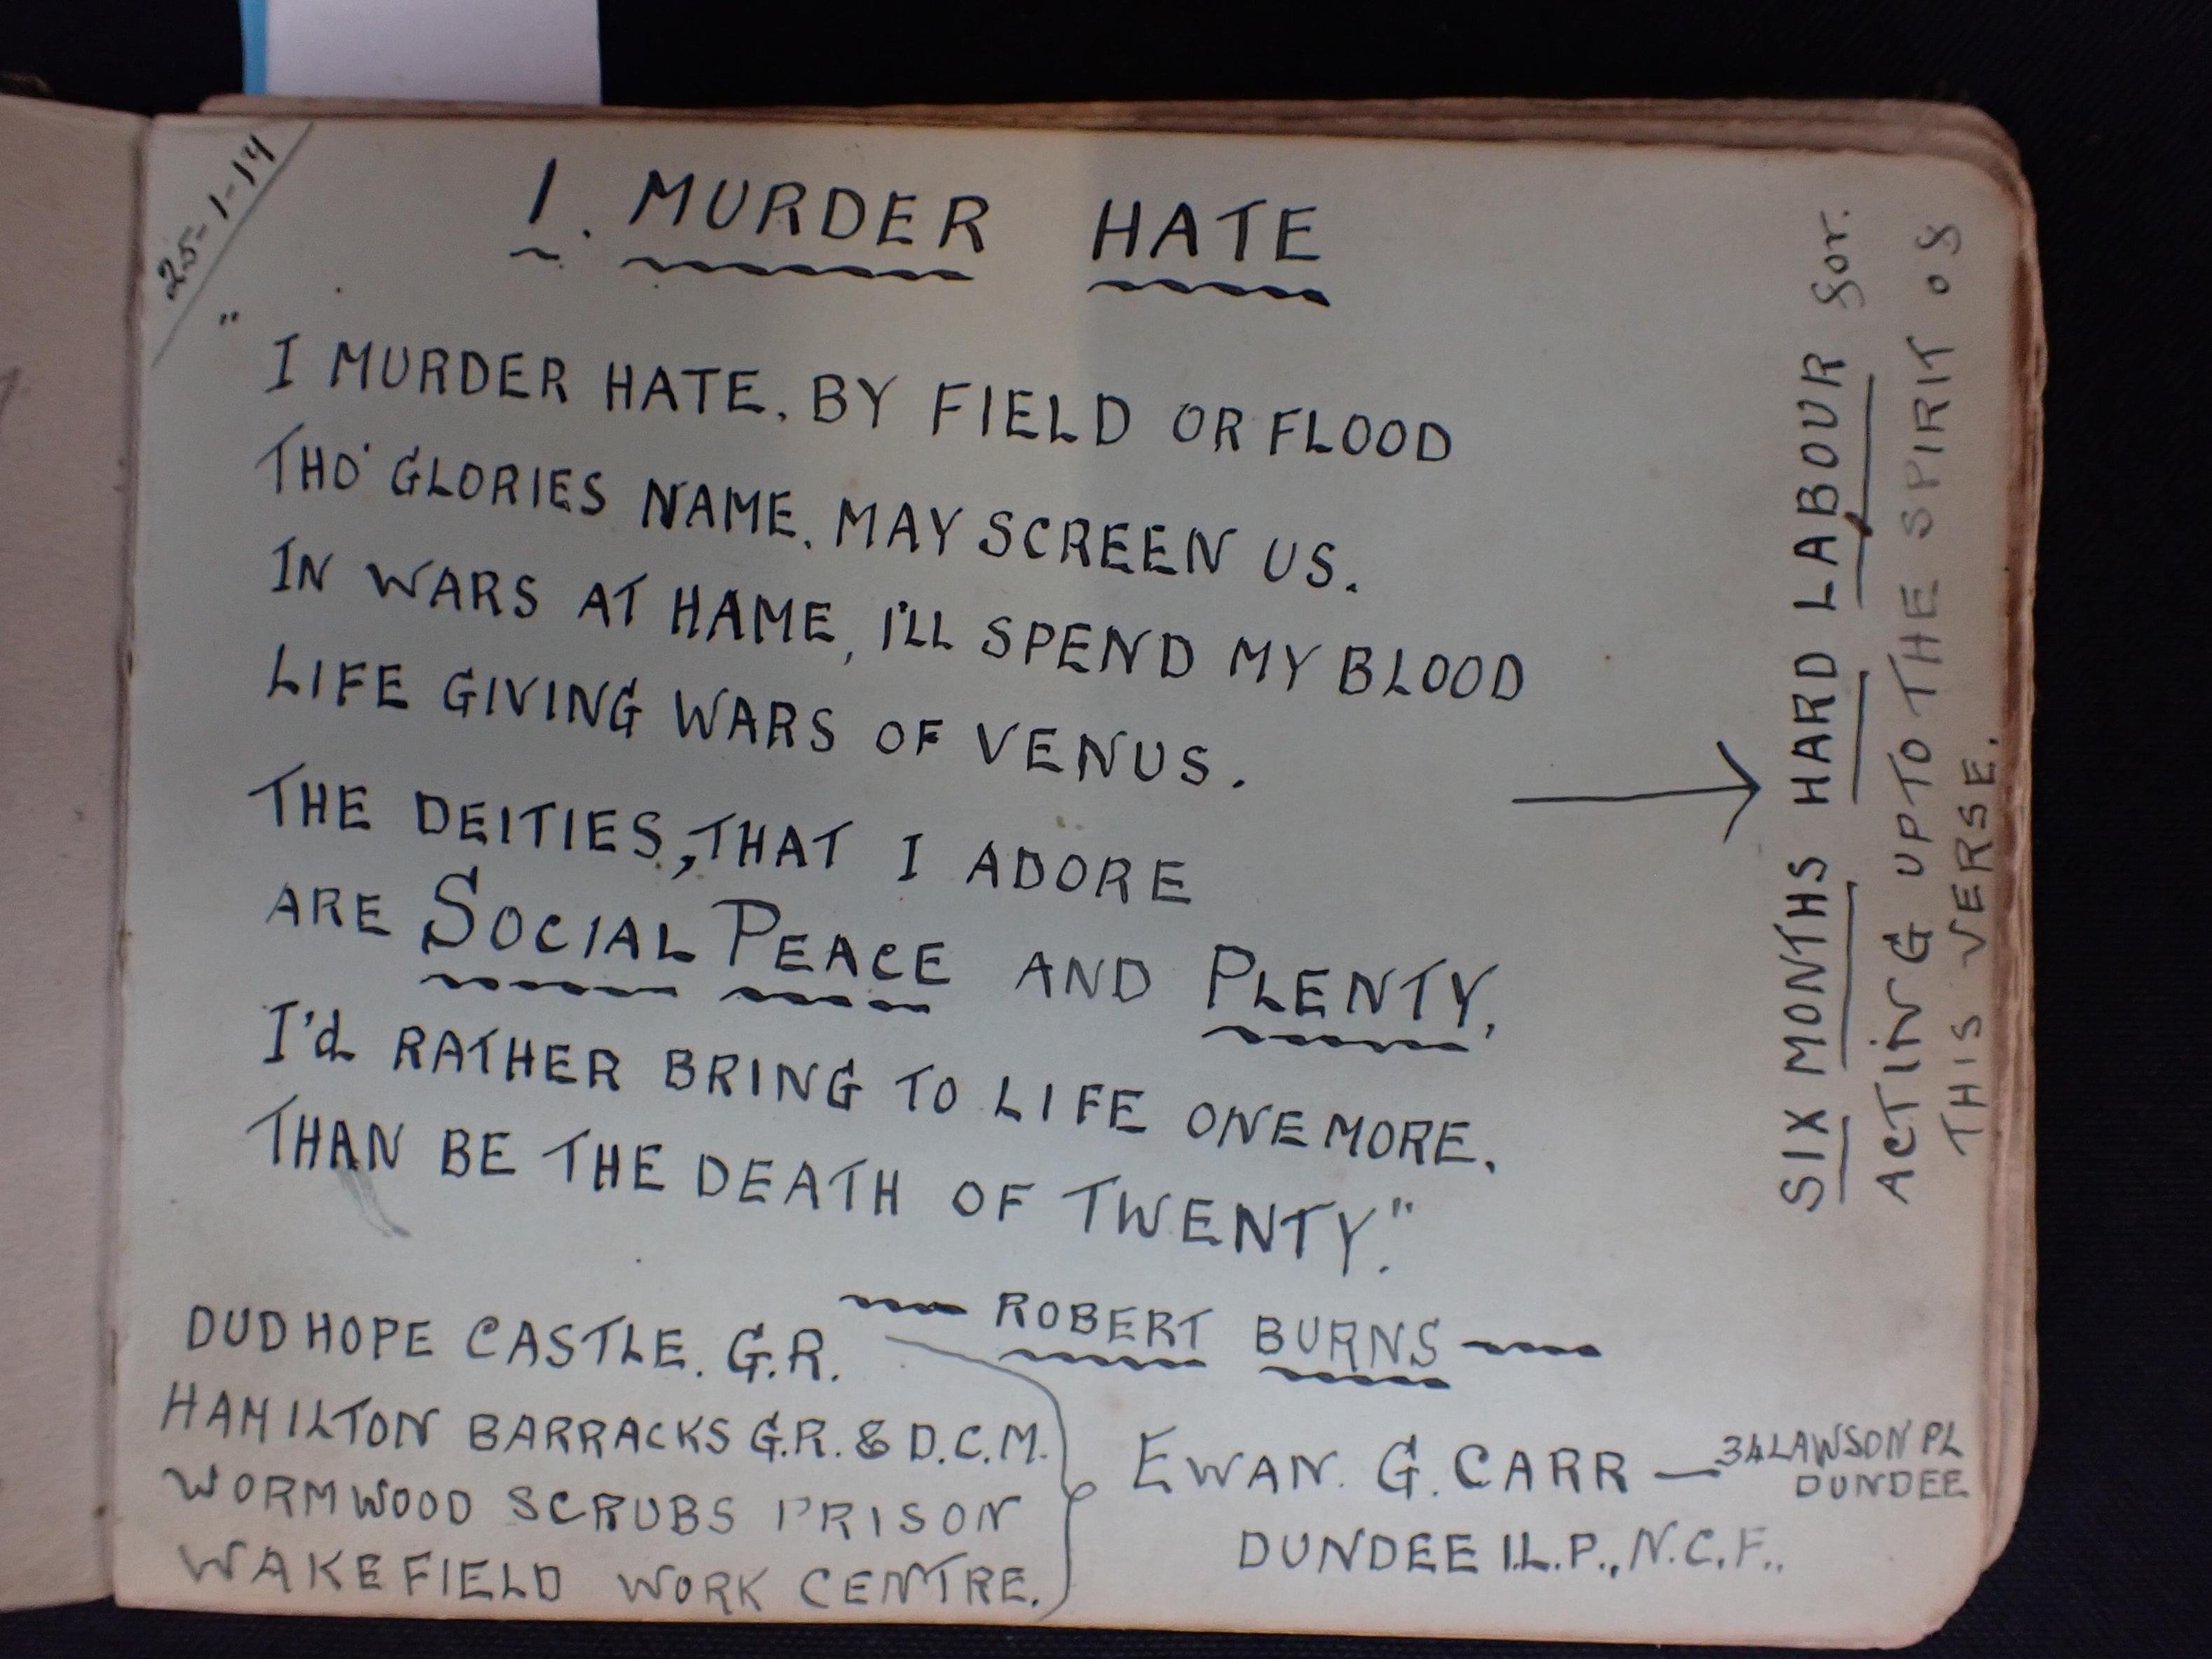 25-1-17
I. MURDER HATE
"I MURDER HATE. BY FIELD OR FLOOD
THO' GLORIES NAME. MAY SCREEN US.
IN WARS AT HAME, I'LL SPEND MY BLOOD
LIFE GIVING WARS OF VENUS.
THE DEITIES, THAT I ADORE
ARE SOCIAL PEACE AND PLENTY.
I'd RATHER BRING TO LIFE ONE MORE.
THAN BE THE DEATH OF TWENTY."
ROBERT BURNS
SIX MONTHS HARD LABOUR for.
ACTING UP TO THE SPIRIT of
THIS VERSE.
DUDHOPE CASTLE. G.R.
HAMILTON BARRACKS G.R. & D.C.M.
WORMWOOD SCRUBS PRISON
WAKEFIELD WORK CENTRE.
EWAN. G. CARR — 34 LAWSON PL
DUNDEE
DUNDEE I.L.P., N.C.F..